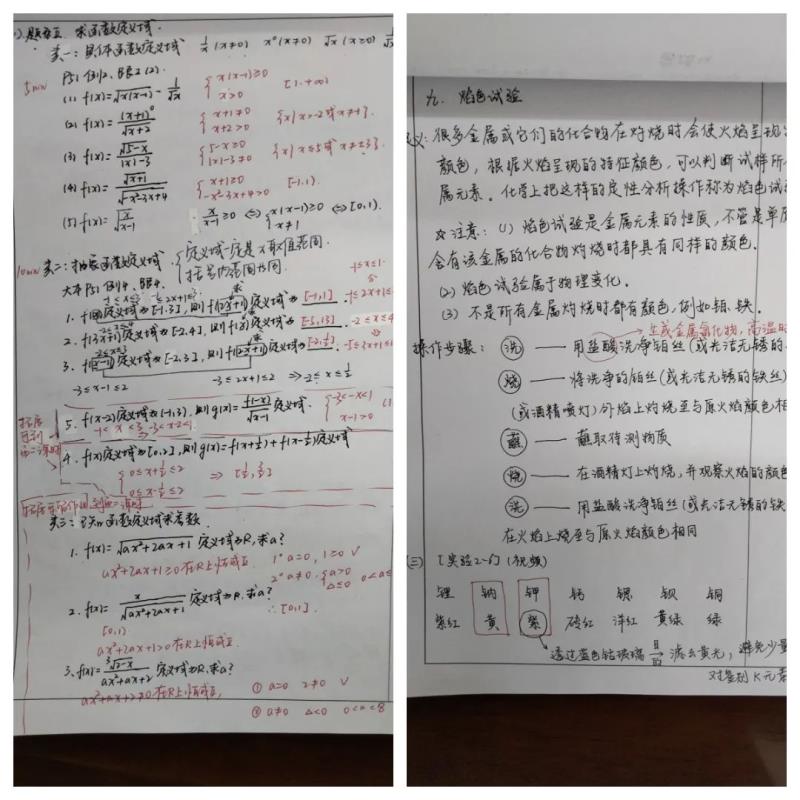 题型三 求函数定义域.
类一:具体函数定义域 1/x (x≠0) x⁰ (x≠0) √x (x≥0)
5min
(1) f(x)=√x(x-1) - 1/√x { x(x-1)≥0 x>0 [1,+∞)
(2) f(x)=(x+1)⁰/√x+2 { x+1≠0 x+2>0 {x|x>-2或x≠-1}
(3) f(x)=√5-x/|x|-3 { 5-x≥0 |x|-3≠0 {x|x≤5或x≠±3}
(4) f(x)=√x+1/√-x²-3x+4 { x+1≥0 -x²-3x+4>0 [-1,1).
(5) f(x)=√x/x-1 x/x-1≥0 ⇔ { x(x-1)≥0 x≠1
10min 类二:抽象函数定义域 { 定义域一定是x取值范围 括号内范围相同
-3≤x-1≤2 -3≤2x+1≤2 ⇒ -2≤x≤1/2
5. f(x-2)定义域为(-1,3),则g(x)=f(-x)/√x-1定义域.
-1<x<3 -3<x-2<1
{ -3<-x<1 x-1>0
4. f(x)定义域为[0,2],则g(x)=f(x+1/2)+f(x-1/2)定义域
{ 0≤x+1/2≤2 0≤x-1/2≤2 ⇒ [1/2,3/2]
类三:已知函数定义域求参数
1. f(x)=√ax²+2ax+1 定义域为R,求a?
ax²+2ax+1≥0在R上恒成立 1° a=0, 1≥0 √
2° a≠0, { a>0 △≤0
∴[0,1]
2. f(x)=x/√ax²+2ax+1 定义域为R,求a?
[0,1)
ax²+2ax+1>0在R上恒成立.
3. f(x)=³√2-x/ax²+ax+2 定义域为R,求a?
ax²+ax+2≠0在R上恒成立, ① a=0 2≠0 √
② a≠0 △<0 0<a<8
九. 焰色试验
义:很多金属或它们的化合物在灼烧时会使火焰呈现
颜色,根据火焰呈现的特征颜色,可以判断试样所
属元素。化学上把这样的定性分析操作称为焰色试
☆注意:(1)焰色试验是金属元素的性质,不管是单质
会有该金属的化合物灼烧时都具有同样的颜色.
(2)焰色试验属于物理变化.
(3)不是所有金属灼烧时都有颜色,例如铂.铁.
生成金属氯化物,高温时
操作步骤:洗 —— 用盐酸洗净铂丝(或光洁无锈的
烧 —— 将洗净的铂丝(或光洁无锈的铁丝)
(或酒精喷灯)外焰上灼烧至与原火焰颜色相
蘸 —— 蘸取待测物质
烧 —— 在酒精灯上灼烧,并观察火焰的颜色
洗 —— 用盐酸洗净铂丝(或光洁无锈的铁
在火焰上烧至与原火焰颜色相同
(三)[实验2-6](视频)
锂 钠 钾 钙 锶 钡 铜
紫红 黄 紫 砖红 洋红 黄绿 绿
透过蓝色钴玻璃 目的 滤去黄光,避免少量
对鉴别K元素